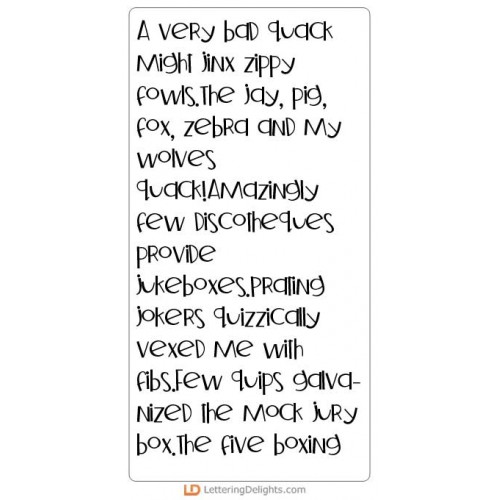 A very bad quack
might jinx zippy
fowls.The jay, pig,
fox, zebra and my
wolves
quack!Amazingly
few discotheques
provide
jukeboxes.Prating
jokers quizzically
vexed me with
fibs.Few quips galva-
nized the mock jury
box.The five boxing
LD LetteringDelights.com